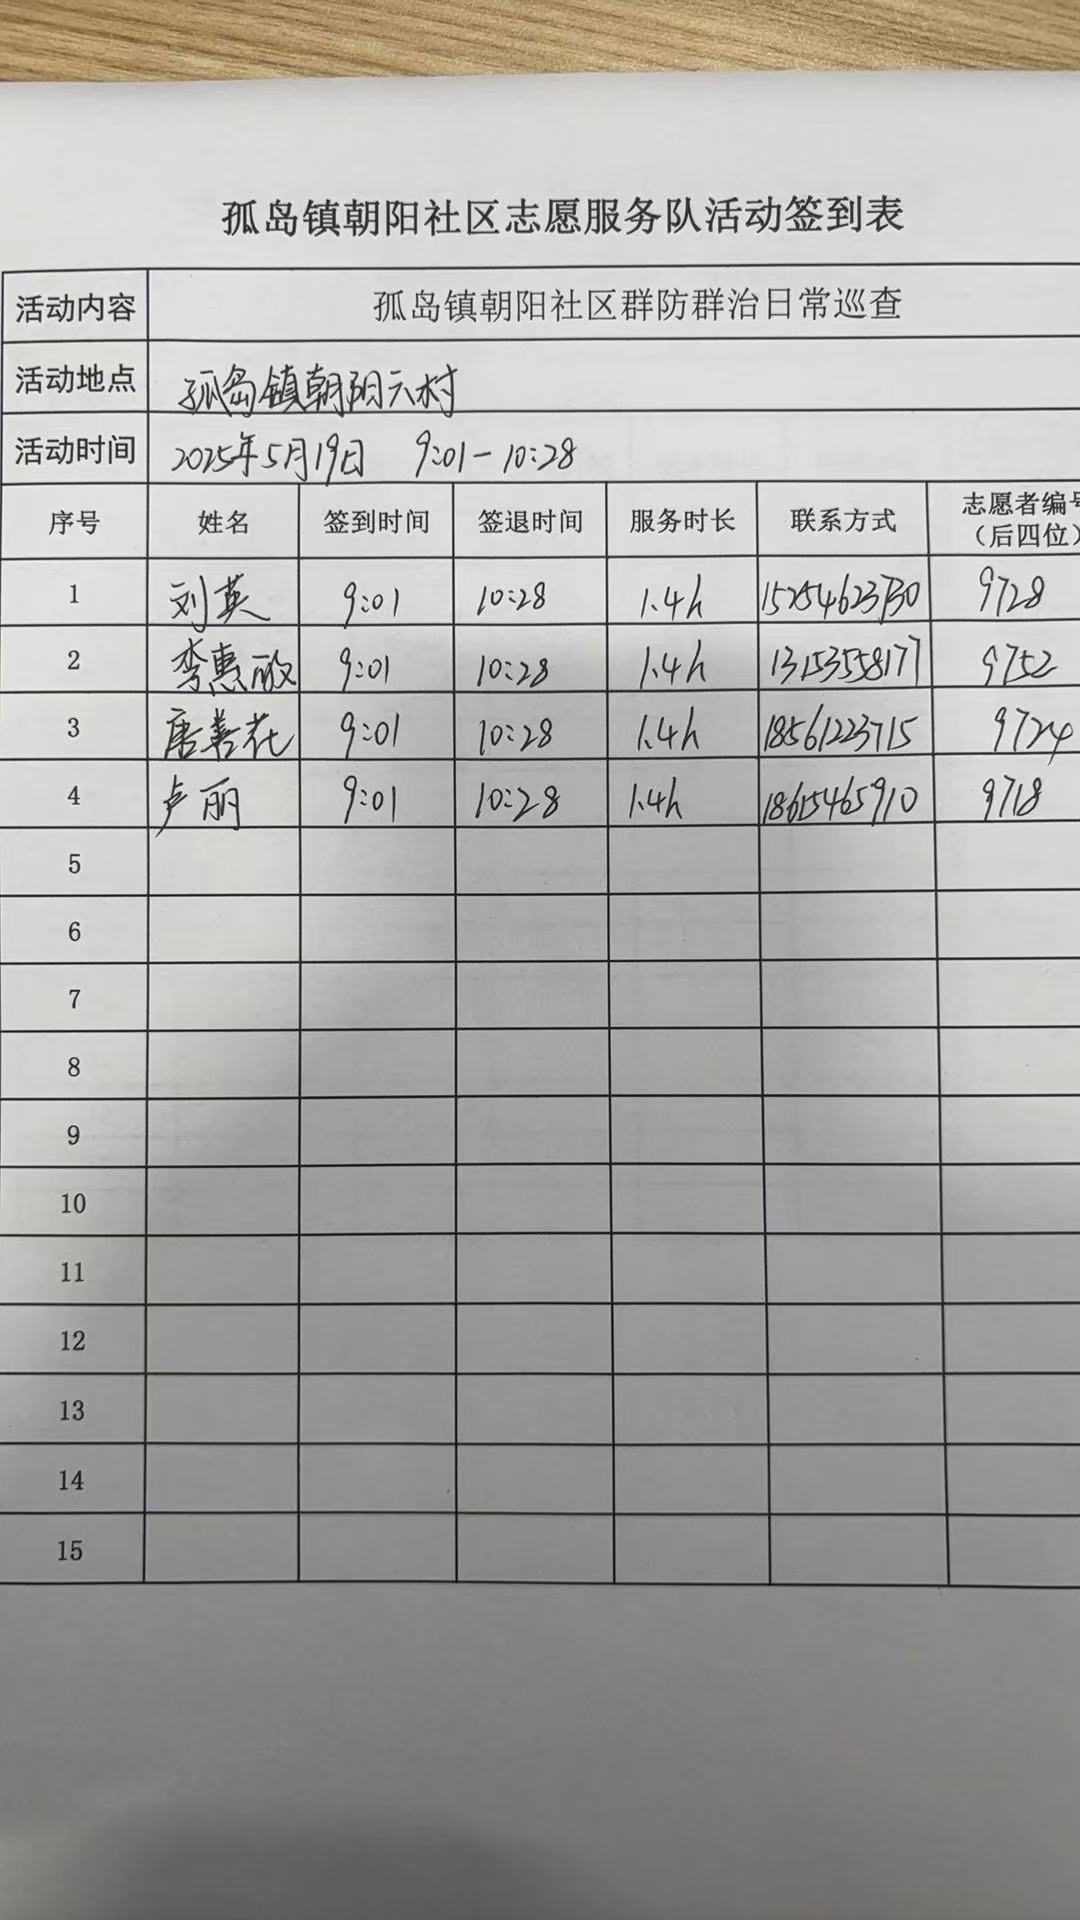 孤岛镇朝阳社区志愿服务队活动签到表
活动内容 孤岛镇朝阳社区群防群治日常巡查
活动地点 孤岛镇朝阳六村
活动时间 2025年5月19日 9:01-10:28
序号 姓名 签到时间 签退时间 服务时长 联系方式 志愿者编号（后四位）
1 刘英 9:01 10:28 1.4h 15254623730 9728
2 李惠敏 9:01 10:28 1.4h 13153558177 9752
3 唐善花 9:01 10:28 1.4h 18561223715 9724
4 卢丽 9:01 10:28 1.4h 18615465910 9718
5
6
7
8
9
10
11
12
13
14
15